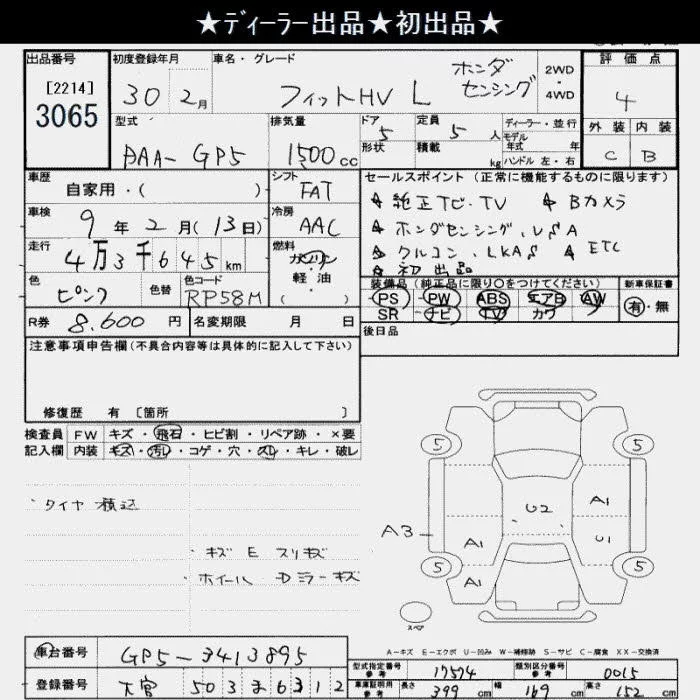 ★ディーラー出品★初出品★
出品番号 初度登録年月 車名・グレード 評価点
[2214]
3065
30 2月
フィットHV L ホンダセンシング
2WD・4WD
4
型式 排気量 ドア 定員 ディーラー・並行 外装 内装
DAA-GP5 1500cc 5 5人
形状 積載 kg
モデル年式 年
ハンドル 左・右
C B
車歴 シフト セールスポイント(正常に機能するものに限ります)
自家用・( ) FAT
☆純正ナビ・TV ☆Bカメラ
車検 9年2月(13日) 冷房 AAC
☆ホンダセンシング、VSA
走行 4万3千645km 燃料 ガソリン・軽油( )
☆クルコン、LKAS ☆ETC
☆初出品
色 ピンク 色替 色コード RP58M
装備品(純正品に限り〇をつけてください) 新車保証書
PS PW ABS エアB AW
SR ナビ TV カワ
有・無
R券 8,600円 名変期限 月 日
後日品
注意事項申告欄(不具合内容等は具体的に記入して下さい)
修復歴 有 [箇所 ]
検査員 FW キズ・飛石・ヒビ割・リペア跡・×要
記入欄 内装 キズ・汚レ・コゲ・穴・スレ・キレ・破レ
・タイヤ積込
・キズ E スリキズ
・ホイール Dミラーキズ
5 5
A1
U2
A3
A1 A1 U1
5 5
スペア
A-キズ E-エクボ U-凹み W-補修跡 S-サビ C-腐食 XX-交換済
車台番号 GP5-3413895
登録番号 大宮 503 ま 6312
型式指定番号 参考 17574 類別区分番号 参考 0015
車庫証明用 参考 長さ 399cm 幅 169cm 高さ 152cm